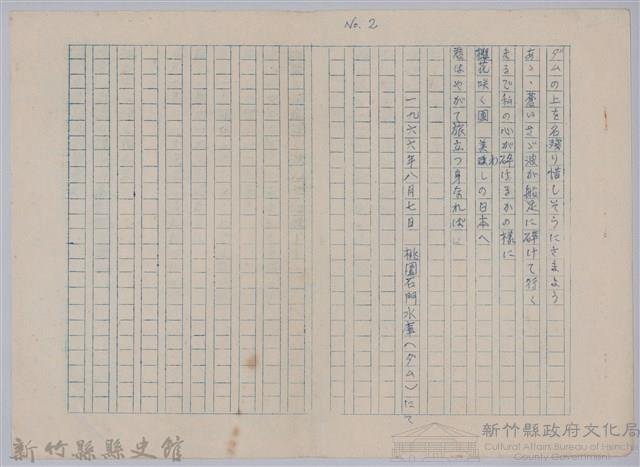 No. 2
ダムの上を名残り惜しそうにさまよう
あゝ、蒼いさゞ波が船足に砕けて行く
まるで私の心が砕けるかの様に
櫻花咲く国 美わしの日本へ
君はやがて旅立つ身なれば
一九六六年八月七日 桃園石門水庫(ダム)にて
新竹縣縣史館
新竹縣政府文化局
Cultural Affairs Bureau of Hsinchu
County Government